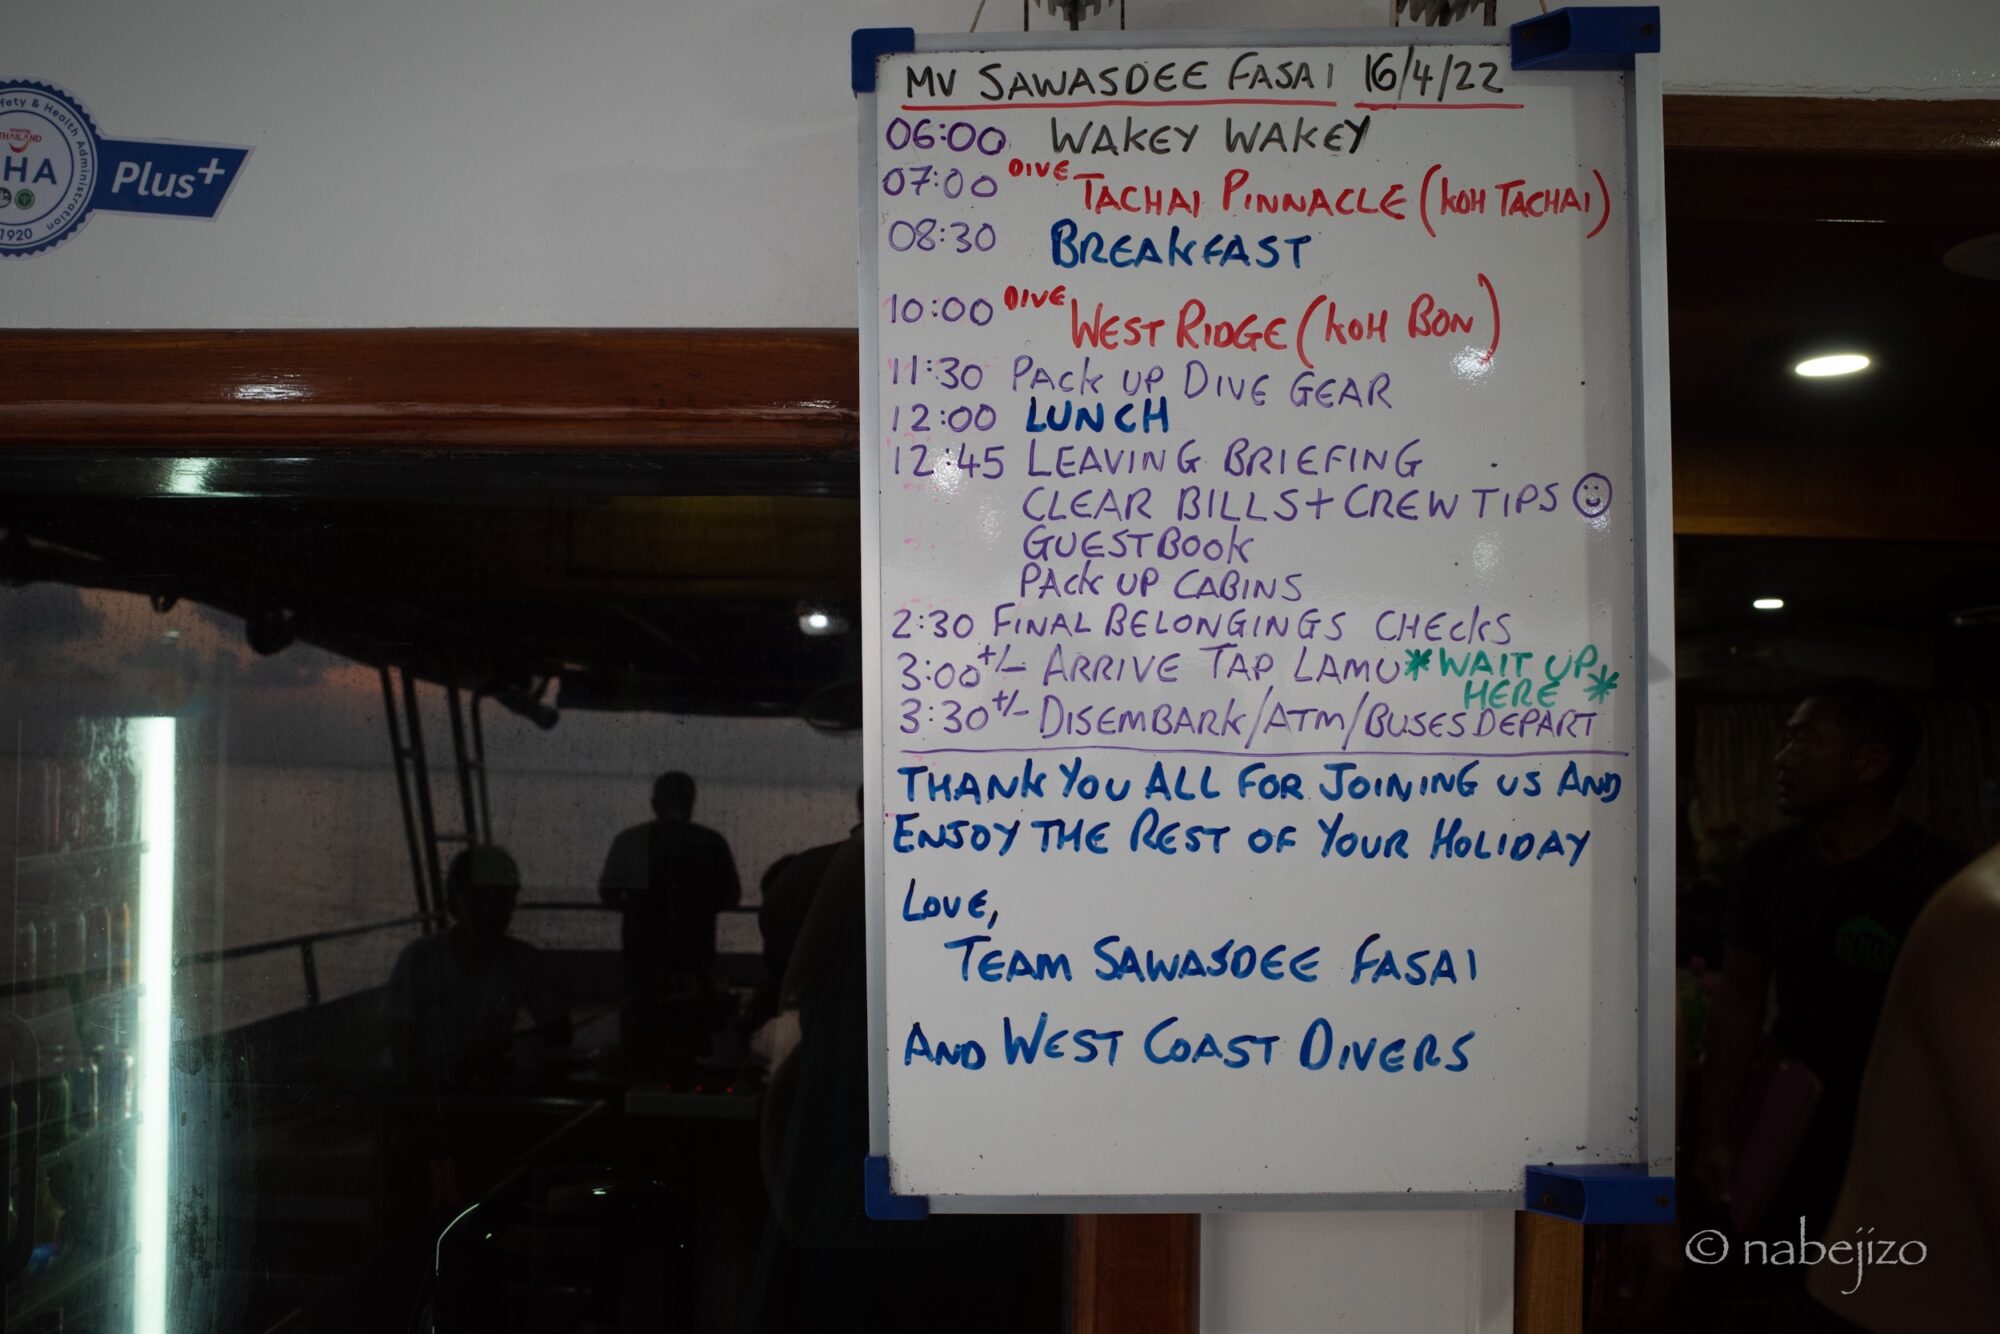 fety & Health Administration
amazing
THAILAND
HA
1920
Plus+
MV SAWASDEE FASAI 16/4/22
06:00 WAKEY WAKEY
07:00 DIVE TACHAI PINNACLE (KOH TACHAI)
08:30 BREAKFAST
10:00 DIVE WEST RIDGE (KOH BON)
11:30 PACK UP DIVE GEAR
12:00 LUNCH
12:45 LEAVING BRIEFING
CLEAR BILLS + CREW TIPS ☺
GUESTBOOK
PACK UP CABINS
2:30 FINAL BELONGINGS CHECKS
3:00 +/- ARRIVE TAP LAMU *WAIT UP
HERE *
3:30 +/- DISEMBARK/ATM/BUSES DEPART
THANK YOU ALL FOR JOINING US AND
ENJOY THE REST OF YOUR HOLIDAY
LOVE,
TEAM SAWASDEE FASAI
AND WEST COAST DIVERS
© nabejizo